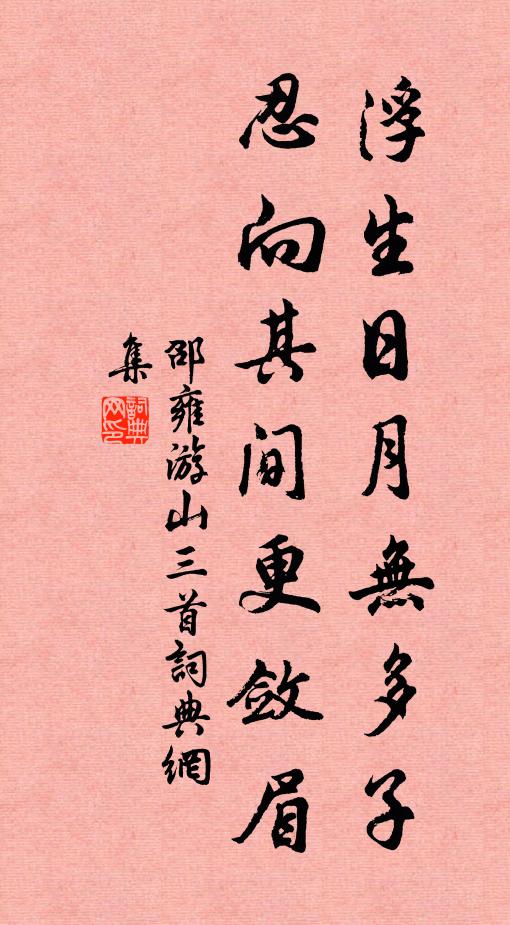 浮生日月無多子
忍向其間更斂眉
邵雍游山三首詞典網
集
詞典
网印